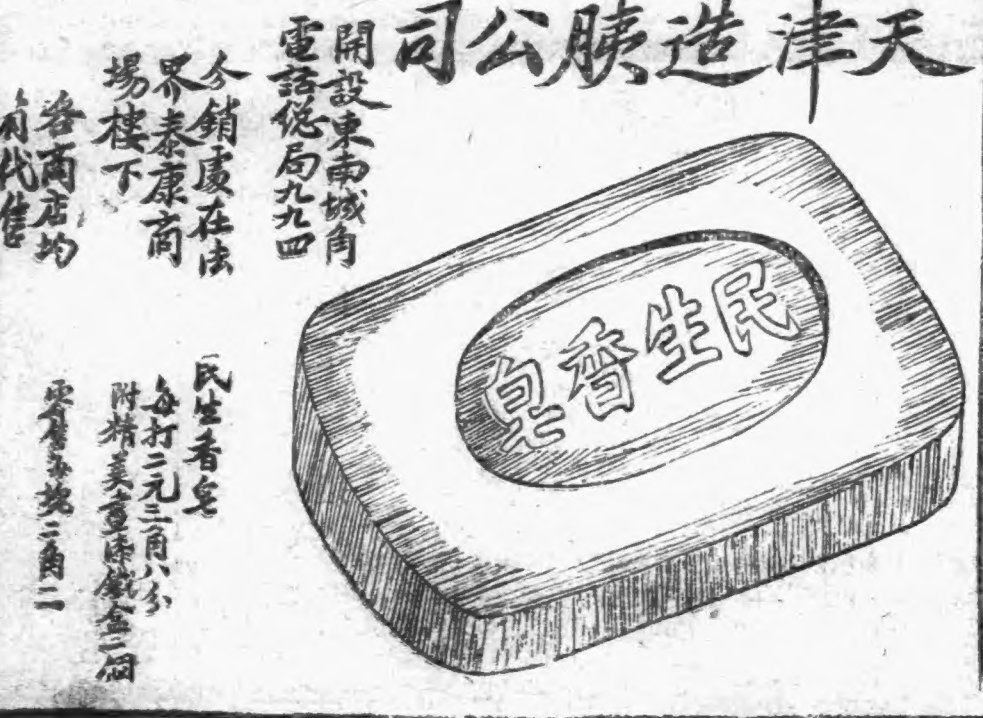 天津造胰公司
開設東南城角
電話總局九九四
分銷處在法
界泰康商
場樓下
各商店均
有代售
民生香皂
民生香皂
每打二元三角八分
附精美直漆鐵盒一個
零售每塊二角二